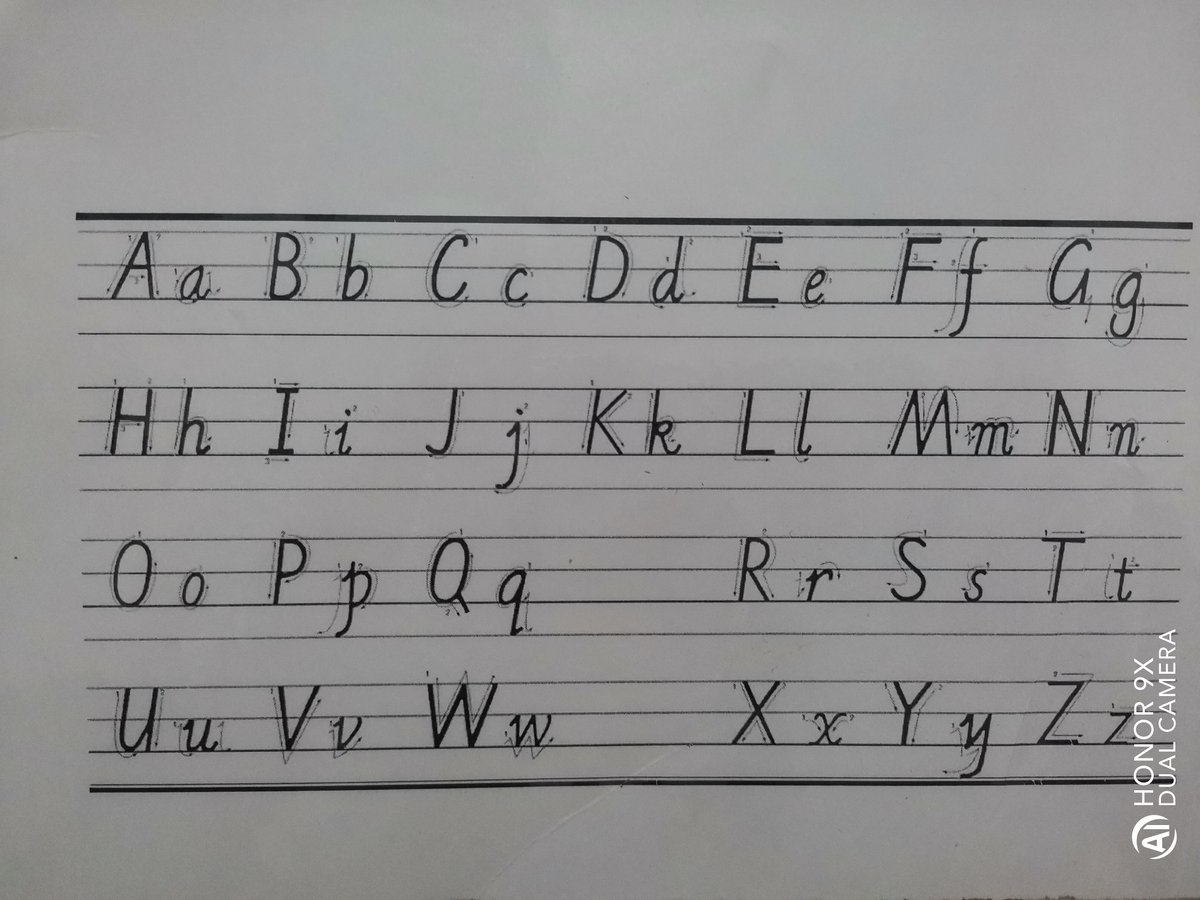 A a B b C c D d E e F f G g
H h I i J j K k L l M m N n
O o P p Q q R r S s T t
U u V v W w X x Y y Z z
HONOR 9X
AI DUAL CAMERA